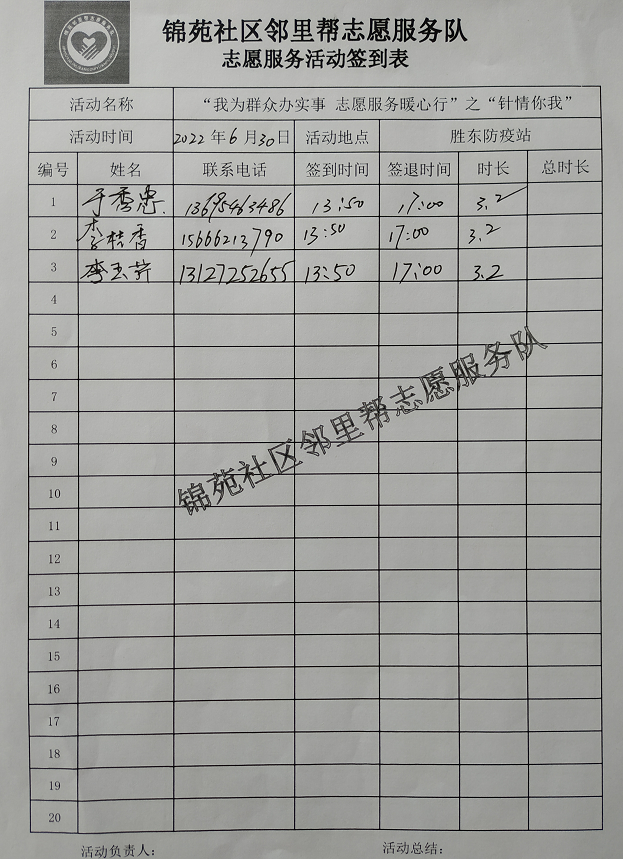 锦苑社区邻里帮志愿服务队
志愿服务活动签到表
活动名称 “我为群众办实事 志愿服务暖心行”之“针情你我”
活动时间 2022年6月30日 活动地点 胜东防疫站
编号 姓名 联系电话 签到时间 签退时间 时长 总时长
1 于秀忠 13695463486 13:50 17:00 3.2
2 李桂香 15666213790 13:50 17:00 3.2
3 李玉芹 13127252655 13:50 17:00 3.2
4
5
6
7
8
9
10
11
12
13
14
15
16
17
18
19
20
锦苑社区邻里帮志愿服务队
活动负责人： 活动总结：